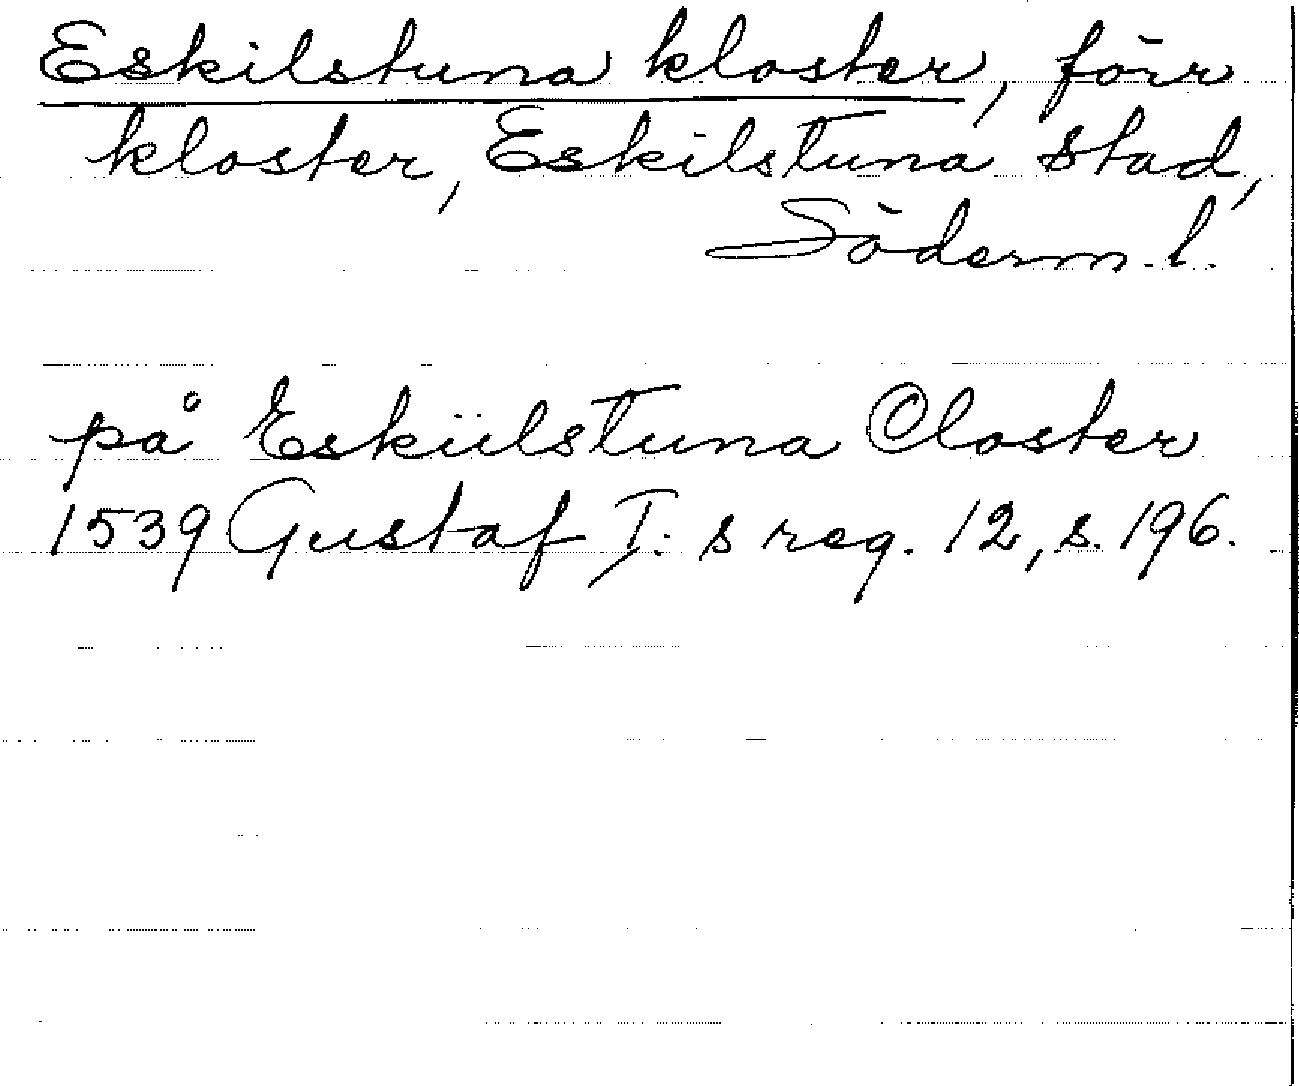 Eskilstuna kloster, förr
kloster, Eskilstuna stad,
Söderm. l.
på Eskiilstuna Closter
1539 Gustaf I:s reg. 12, s. 196.